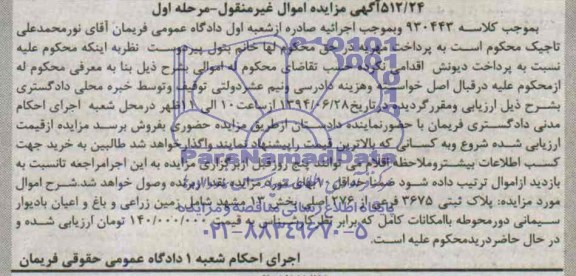 ۵۱۲/۲۴آگهی مزایده اموال غیرمنقول-مرحله اول
بموجب کلاسه ۹۳۰۴۴۳ وبموجب اجرائیه صادره ازشعبه اول دادگاه عمومی فریمان آقای نورمحمدعلی
تاجیک محکوم است به پرداخت مهریه در حق محکوم لها خانم بتول پیردوست نظربه اینکه محکوم علیه
نسبت به پرداخت دیونش اقدامی حسب تقاضای محکوم له اموالی بشرح ذیل بنا به معرفی محکوم له
ازمحکوم علیه درقبال اصل خواسته وهزینه دادرسی ونیم عشردولتی توقیف وتوسط خبره محلی دادگستری
بشرح ذیل ارزیابی ومقررگردیده درتاریخ ۱۳۹۴/۰۶/۲۸ ازساعت ۱۰ الی ۱۱ظهر درمحل شعبه اجرای احکام
مدنی دادگستری فریمان با حضورنماینده دادستان ازطریق مزایده حضوری بفروش برسد مزایده ازقیمت
ارزیابی شده شروع وبه کسانی که بالاترین قیمت راپیشنهاد نمایند واگذارخواهد شد طالبین به خرید جهت
کسب اطلاعات بیشتروملاحظه اقلام می توانند پنج روزقبل ازبرگزاری مزایده به این اجرامراجعه تانسبت به
بازدید ازاموال ترتیب داده شود ضمنا حداقل بهای مورد مزایده نقدا ازبرنده وصول خواهد شد.شرح اموال
مورد مزایده: پلاک ثبتی ۳۶۷۵ فرعی از ۲۷۶ اصلی بخش ۱۳ مشهد شامل زمین زراعی و باغ و اعیان بادیوار
سیمانی دورمحوطه باامکانات کامل که برابر نظر کارشناس به قیمت ۱۴۰/۰۰۰/۰۰۰ تومان ارزیابی شده و
در حال حاضردرید محکوم علیه است.
اجرای احکام شعبه ۱ دادگاه عمومی حقوقی فریمان
ParsNamadData
پایگاه اطلاع رسانی مناقصه و مزایده
۰۲۱-۸۸۳۴۹۶۷۰-۵